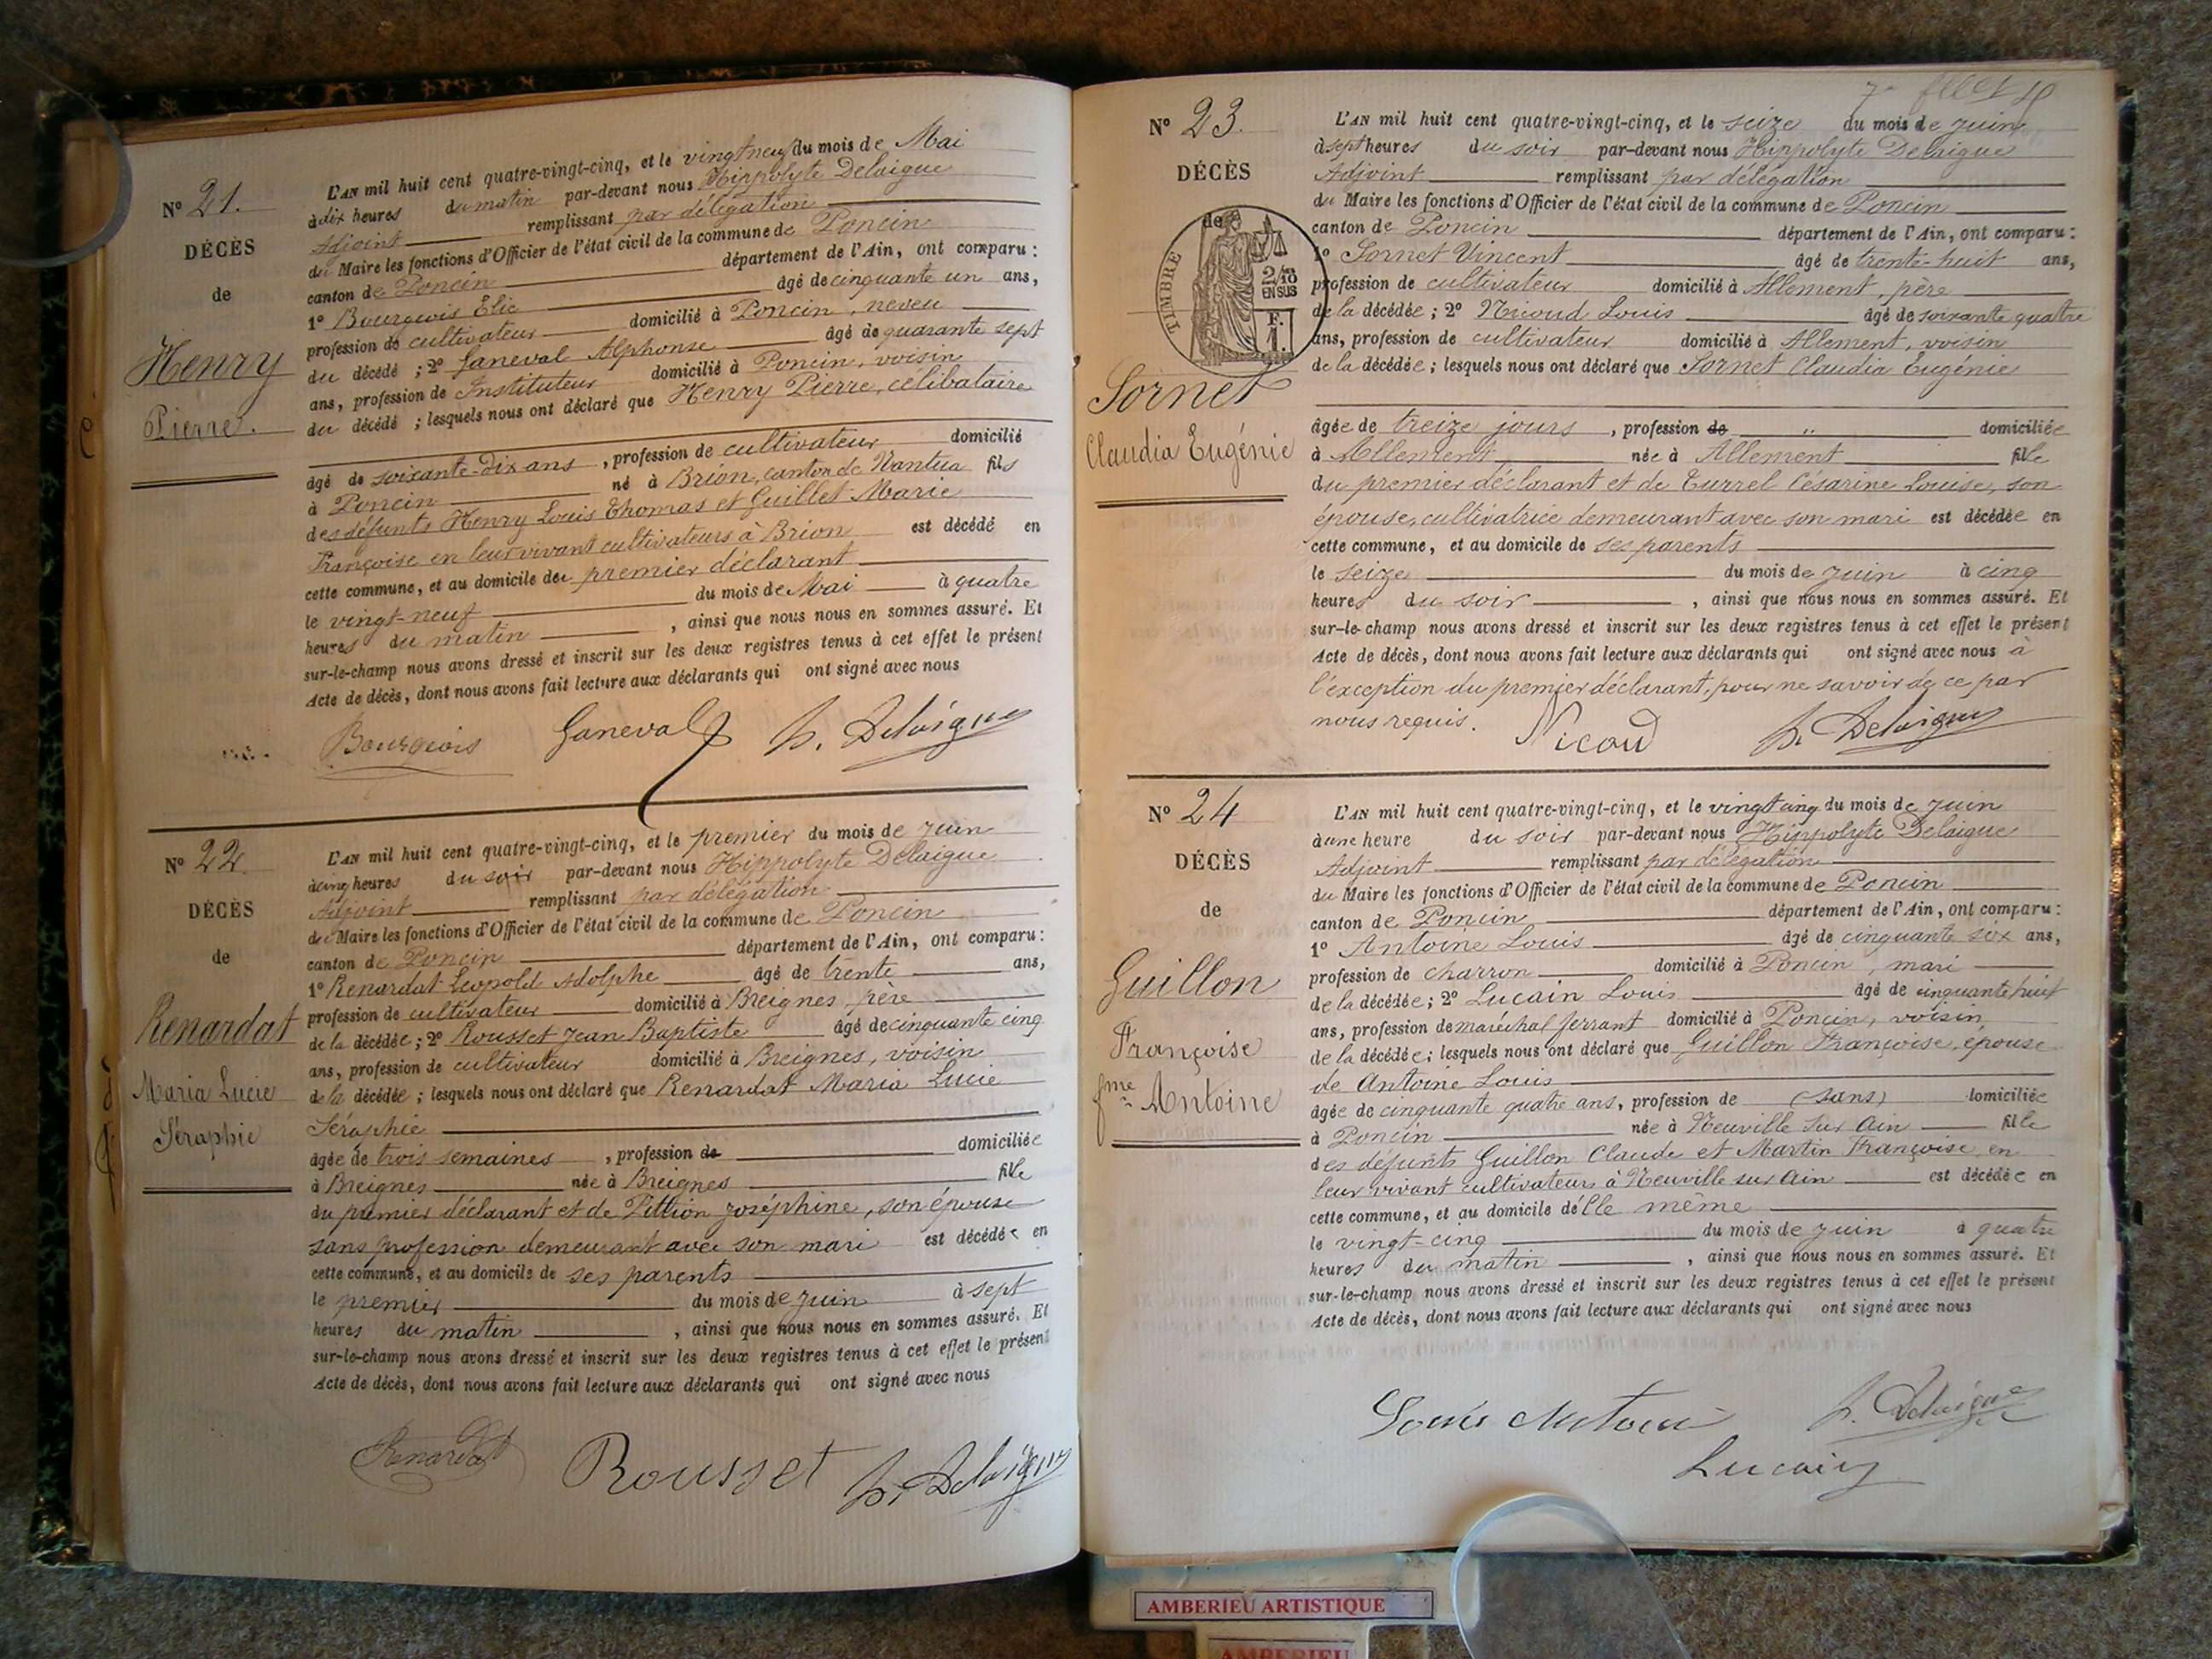 N° 21.
DÉCÈS
de
Henry
Pierre.
L'AN mil huit cent quatre-vingt-cinq, et le vingt neuf du mois de Mai
à dix heures du matin par-devant nous Hippolyte Delaigue
Adjoint remplissant par délégation
du Maire les fonctions d'Officier de l'état civil de la commune de Poncin
canton de Poncin département de l'Ain, ont comparu :
1° Bourgeois Elie âgé de cinquante un ans,
profession de cultivateur domicilié à Poncin, neveu
du décédé ; 2° Ganeval Alphonse âgé de quarante sept
ans, profession de Instituteur domicilié à Poncin, voisin
du décédé ; lesquels nous ont déclaré que Henry Pierre, célibataire
âgé de soixante-dix ans, profession de cultivateur domicilié
à Poncin né à Brion, canton de Nantua fils
des défunts Henry Louis Thomas et Guillet Marie
Françoise en leur vivant cultivateurs à Brion est décédé en
cette commune, et au domicile du premier déclarant
le vingt-neuf du mois de Mai à quatre
heures du matin, ainsi que nous nous en sommes assuré. Et
sur-le-champ nous avons dressé et inscrit sur les deux registres tenus à cet effet le présent
Acte de décès, dont nous avons fait lecture aux déclarants qui ont signé avec nous
Bourgeois Ganeval h. Delaigue
N° 22.
DÉCÈS
de
Renardat
Maria Lucie
Séraphie
L'AN mil huit cent quatre-vingt-cinq, et le premier du mois de Juin
à cinq heures du soir par-devant nous Hippolyte Delaigue
Adjoint remplissant par délégation
du Maire les fonctions d'Officier de l'état civil de la commune de Poncin
canton de Poncin département de l'Ain, ont comparu :
1° Renardat Léopold Adolphe âgé de trente ans,
profession de cultivateur domicilié à Breignes, père
de la décédée ; 2° Rousset Jean Baptiste âgé de cinquante cinq
ans, profession de cultivateur domicilié à Breignes, voisin
de la décédée ; lesquels nous ont déclaré que Renardat Maria Lucie
Séraphie
âgée de trois semaines, profession de domiciliée
à Breignes née à Breignes fille
du premier déclarant et de Pittion Joséphine, son épouse
sans profession demeurant avec son mari est décédée en
cette commune, et au domicile de ses parents
le premier du mois de Juin à sept
heures du matin, ainsi que nous nous en sommes assuré. Et
sur-le-champ nous avons dressé et inscrit sur les deux registres tenus à cet effet le présent
Acte de décès, dont nous avons fait lecture aux déclarants qui ont signé avec nous
Renardat Rousset h. Delaigue
N° 23.
DÉCÈS
de
TIMBRE
2/10
EN SUS
F.
1.
Sornet
Claudia Eugénie
L'AN mil huit cent quatre-vingt-cinq, et le seize du mois de Juin
à sept heures du soir par-devant nous Hippolyte Delaigue
Adjoint remplissant par délégation
du Maire les fonctions d'Officier de l'état civil de la commune de Poncin
canton de Poncin département de l'Ain, ont comparu :
1° Sornet Vincent âgé de trente-huit ans,
profession de cultivateur domicilié à Allement, père
de la décédée ; 2° Nicoud Louis âgé de soixante quatre
ans, profession de cultivateur domicilié à Allement, voisin
de la décédée ; lesquels nous ont déclaré que Sornet Claudia Eugénie
âgée de treize jours, profession de " domiciliée
à Allement née à Allement fille
du premier déclarant et de Turrel Césarine Louise, son
épouse, cultivatrice demeurant avec son mari est décédée en
cette commune, et au domicile de ses parents
le seize du mois de Juin à cinq
heures du soir, ainsi que nous nous en sommes assuré. Et
sur-le-champ nous avons dressé et inscrit sur les deux registres tenus à cet effet le présent
Acte de décès, dont nous avons fait lecture aux déclarants qui ont signé avec nous à
l'exception du premier déclarant, pour ne savoir de ce par
nous requis. Nicoud h. Delaigue
N° 24
DÉCÈS
de
Guillon
Françoise
fme Antoine
L'AN mil huit cent quatre-vingt-cinq, et le vingt cinq du mois de Juin
à une heure du soir par-devant nous Hippolyte Delaigue
Adjoint remplissant par délégation
du Maire les fonctions d'Officier de l'état civil de la commune de Poncin
canton de Poncin département de l'Ain, ont comparu :
1° Antoine Louis âgé de cinquante six ans,
profession de charron domicilié à Poncin, mari
de la décédée ; 2° Lucain Louis âgé de cinquante huit
ans, profession de maréchal ferrant domicilié à Poncin, voisin
de la décédée ; lesquels nous ont déclaré que Guillon Françoise, épouse
de Antoine Louis
âgée de cinquante quatre ans, profession de (sans) domiciliée
à Poncin née à Neuville sur Ain fille
des défunts Guillon Claude et Martin Françoise, en
leur vivant cultivateurs à Neuville sur Ain est décédée en
cette commune, et au domicile d'elle même
le vingt-cinq du mois de Juin à quatre
heures du matin, ainsi que nous nous en sommes assuré. Et
sur-le-champ nous avons dressé et inscrit sur les deux registres tenus à cet effet le présent
Acte de décès, dont nous avons fait lecture aux déclarants qui ont signé avec nous
Louis Antoine h. Delaigue
Lucain
AMBERIEU ARTISTIQUE
AMBERIEU